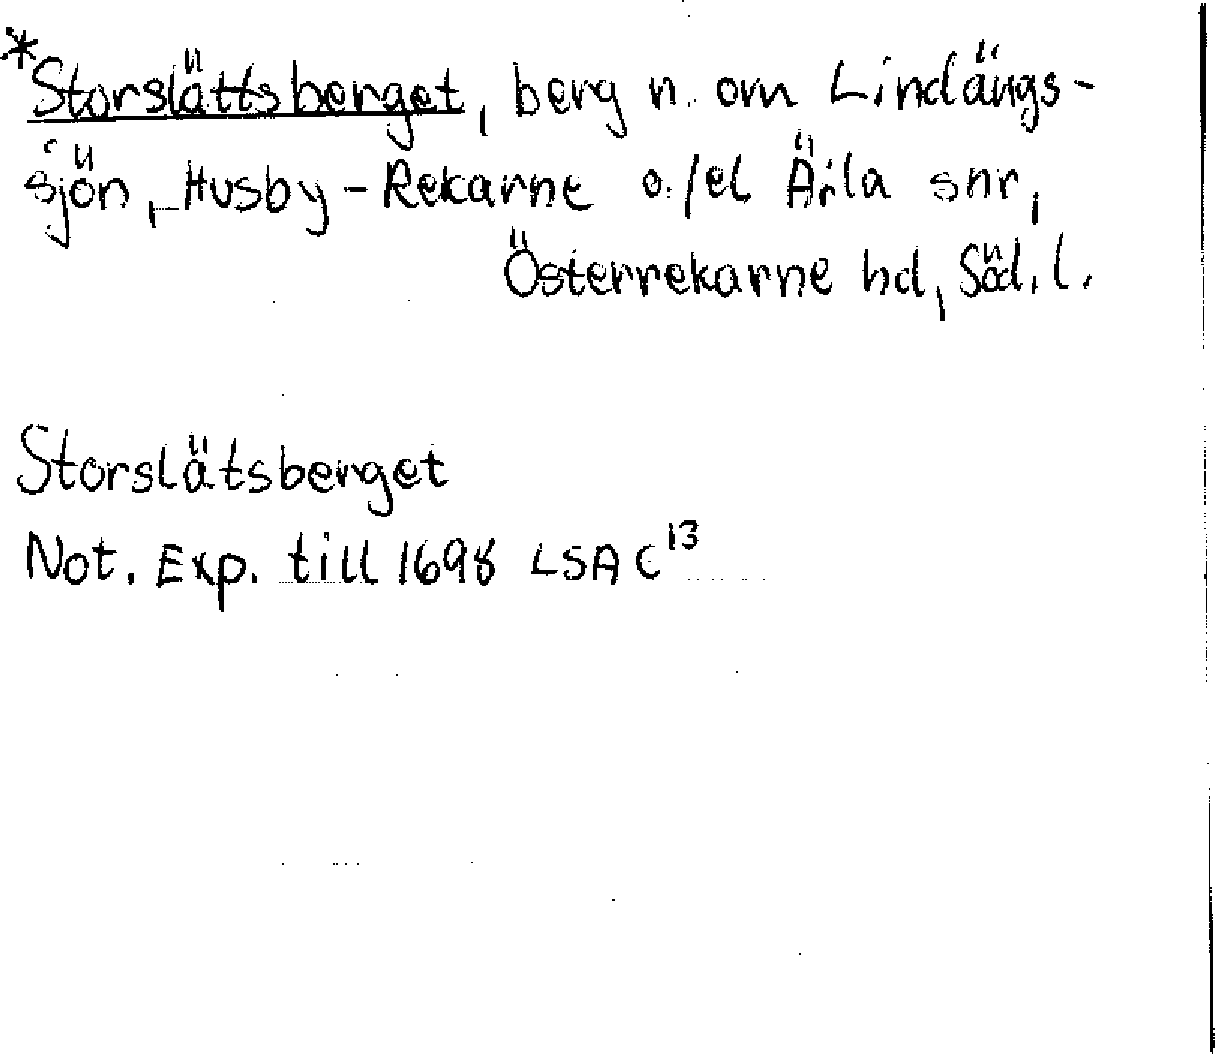 *Storslättsberget, berg n. om Lindängs-
sjön, Husby-Rekarne o./el Ärla snr,
Österrekarne hd, Söd. l.
Storslätsberget
Not. Exp. till 1698 LSA C¹³